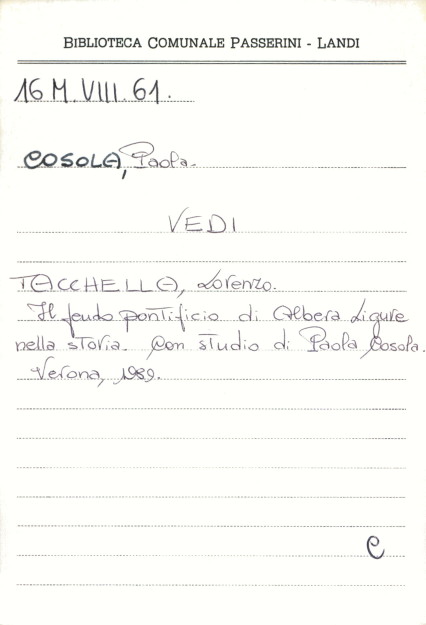 BIBLIOTECA COMUNALE PASSERINI - LANDI
16 M. VIII. 61.
COSOLA, Paola.
VEDI
TACCHELLA, Lorenzo.
Il feudo pontificio di Albera Ligure
nella storia. Con studio di Paola Cosola.
Verona, 1989.
C